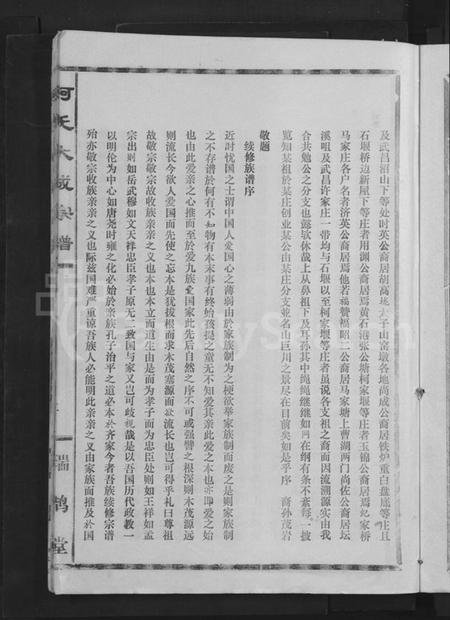 及武昌沼山下等处时英公裔居胡高垅大子山窑墩各地尚成公裔居铁炉重白盘底等庄且
石堰桥边新屋下等庄者用渊公裔居焉黄石港张公塘柯家堰等庄者玉锦公裔居焉纪家桥
马家庄各户名者济英公裔居焉他若福赞福昭二公裔居马家塘上曹湖两门尚佐公裔居坛
溪咀及武昌许家庄一带均与石堰以至柯家堰等庄者虽说各支祖之裔而因流溯源实由我
合共勉公之分支也懿欤休哉上从鼻祖下及耳孙其中绳绳继继如网在纲有条不紊每一披
览知某祖於某庄创业某公由某庄分支并名山巨川之景尽在目前矣如是乎序 裔孙茂岩
敬题
续修族谱序
近时忧国之士谓中国人爱国心之薄弱由於家族制为之梗欲举家族制而废之是则家族制
之不存谱於何有不知物有本末事有终始孩提之童无不知爱其亲此爱之本也亦即爱之始
也由此爱亲之心推而至於爱九族爱国家此先后自然之序不可或强譬之根深则木茂源远
则流长今欲人爱国而先使之忘本是犹拔根而求木茂塞源而欲流长也岂可得乎礼曰尊祖
故敬宗敬宗故收族亲亲之义也本也本立而道生由是而为孝子而为忠臣处则如王祥如孟
宗出则如岳武穆如文天祥忠臣孝子原无二致国与家又岂可歧视哉是以吾国历代政教一
以明伦为中心如唐尧时雍之化必始於亲族孔子治平之道必本於齐家今者吾族续修宗谱
殆亦敬宗收族亲亲之义也际兹国难严重谅吾族人必能明此亲亲之义由家族而推及於国
柯氏大成宗谱
瑞鹊堂